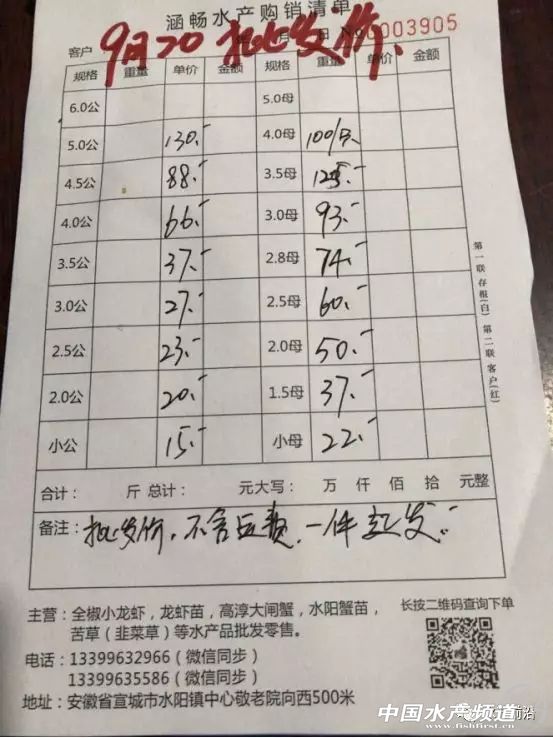 涵畅水产购销清单
客户 月 日 No0003905
9月20 批发价、
规格 重量 单价 金额 规格 重量 单价 金额
6.0公 5.0母
5.0公 130.- 4.0母 100/只
4.5公 88.- 3.5母 125.-
4.0公 66.- 3.0母 93.-
3.5公 37.- 2.8母 74.-
3.0公 27.- 2.5母 60.-
2.5公 23.- 2.0母 50.-
2.0公 20.- 1.5母 37.-
小公 15.- 小母 22.-
第一联存根(白) 第二联客户(红)
合计: 斤 总计: 元大写: 万 仟 佰 拾 元整
备注: 批发价,不含运费,一件起发.
主营:全椒小龙虾,龙虾苗,高淳大闸蟹,水阳蟹苗,
苦草(韭菜草)等水产品批发零售。
长按二维码查询下单
电话:13399632966(微信同步)
13399635586(微信同步)
地址:安徽省宣城市水阳镇中心敬老院向西500米
中国水产频道
www.fishfirst.cn